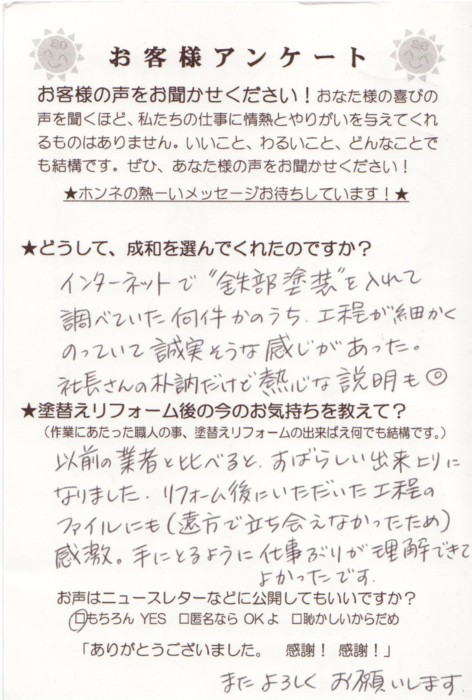 お客様アンケート
お客様の声をお聞かせください！おなた様の喜びの
声を聞くほど、私たちの仕事に情熱とやりがいを与えてくれ
るものはありません。いいこと、わるいこと、どんなことで
も結構です。ぜひ、あなた様の声をお聞かせください！
★ホンネの熱ーいメッセージお待ちしています！★
★どうして、成和を選んでくれたのですか？
インターネットで“鉄部塗装”を入れて
調べていた何件かのうち、工程が細かく
のっていて誠実そうな感じがあった。
社長さんの朴訥だけど熱心な説明も◎
★塗替えリフォーム後の今のお気持ちを教えて？
（作業にあたった職人の事、塗替えリフォームの出来ばえ何でも結構です。）
以前の業者と比べると、すばらしい出来上りに
なりました。リフォーム後にいただいた工程の
ファイルにも（遠方で立ち会えなかったため）
感激。手にとるように仕事ぶりが理解できて
よかったです。
お声はニュースレターなどに公開してもいいですか？
☐もちろん YES ☐匿名なら OK よ ☐恥かしいからだめ
「ありがとうございました。 感謝！ 感謝！」
またよろしくお願いします。